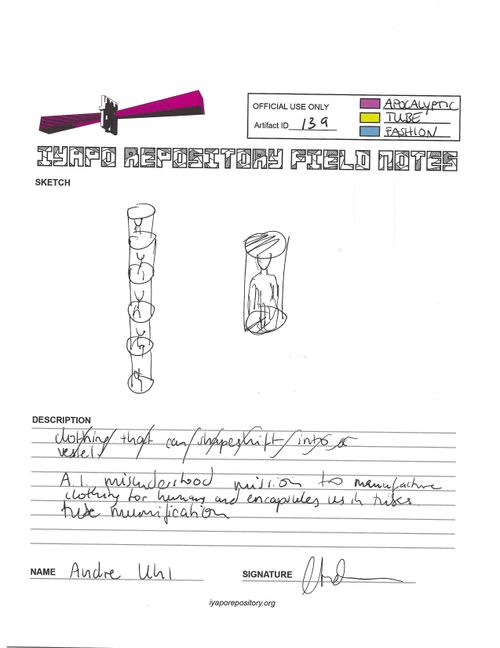 OFFICIAL USE ONLY
Artifact ID 139
APOCALYPTIC
TUBE
FASHION
IYAPO REPOSITORY FIELD NOTES
SKETCH
DESCRIPTION
clothing that can shapeshift into a
vessel
A.I. misunderstood mission to manufacture
clothing for humans and encapsules us in tubes.
tube mumification
NAME Andre Uhl
SIGNATURE
iyaporepository.org